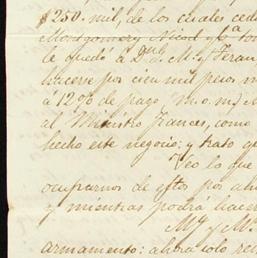 $250. mil, de los cuales ced
Montgomery Nicod y Cª to
le quedó à Dn M. Y Feran
hacerse por cien mil pesos
à 12% de pago, m.o.m.)
al Ministro frances, como
hecho este negocio: y trato q
Veo lo que
ocuparnos de estos por ah
y mientras podrá hacer
My M.
armamento: ahora solo re